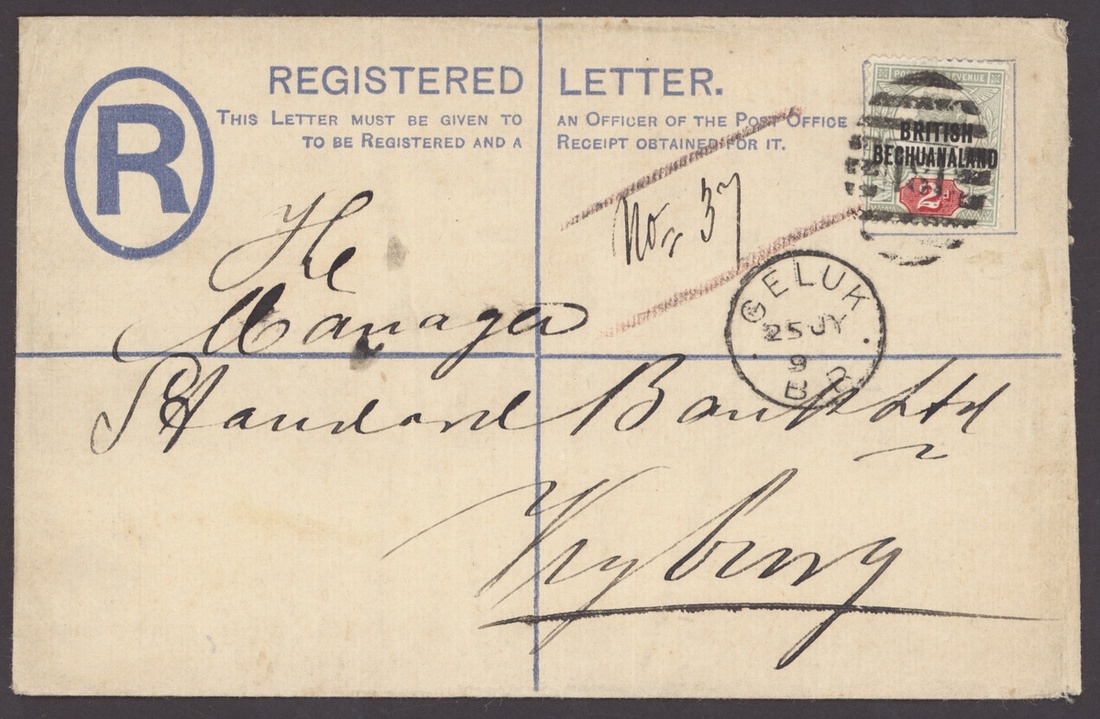 R
REGISTERED LETTER.
THIS LETTER MUST BE GIVEN TO AN OFFICER OF THE POST OFFICE
TO BE REGISTERED AND A RECEIPT OBTAINED FOR IT.
REVENUE
BRITISH
BECHUANALAND
2d
No 37
GELUK
25 JY
9
B B
The
Manager
Standard Bank Ltd
Vryburg